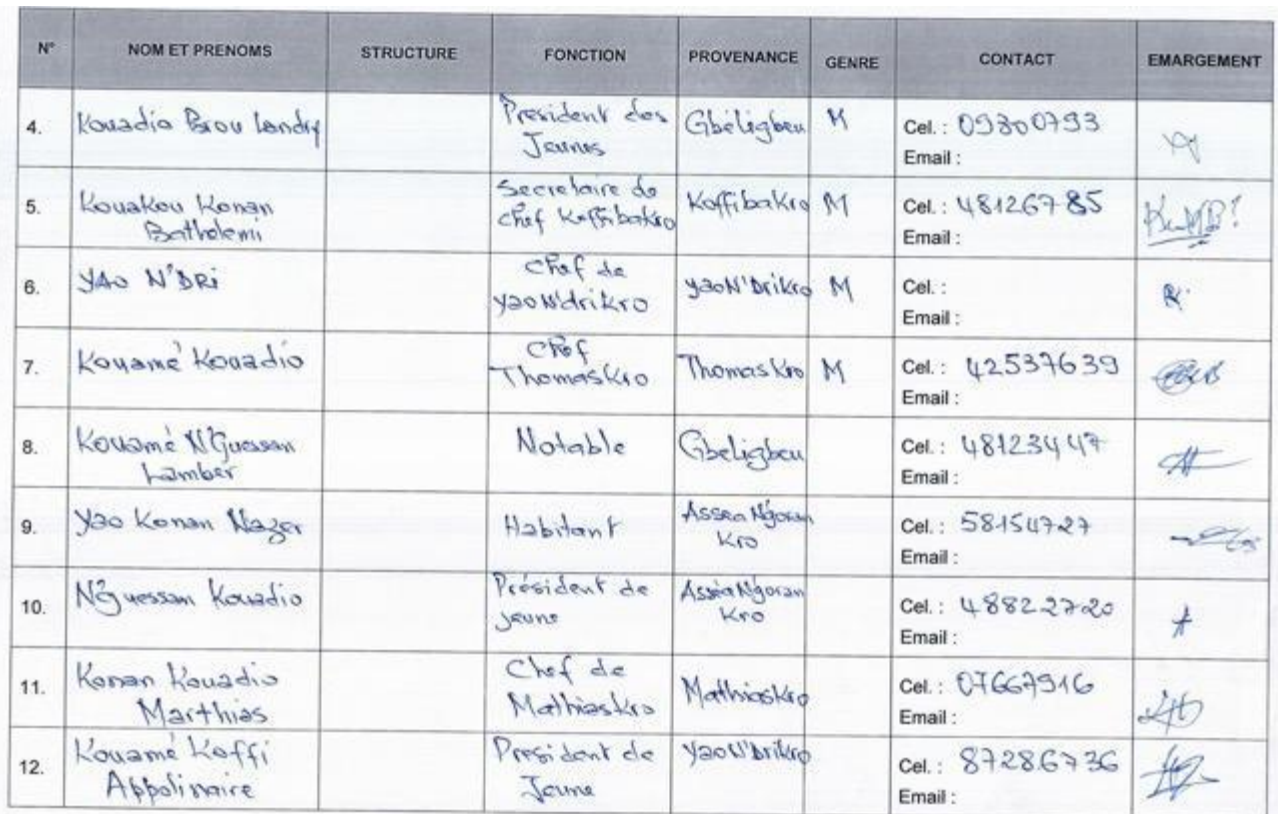 N° NOM ET PRENOMS STRUCTURE FONCTION PROVENANCE GENRE CONTACT EMARGEMENT
4. Kouadio Brou Landry President des Jeunes Gbéligbeu M Cel. : 09300793
Email :
5. Kouakou Konan Batholemi Secretaire de chef Koffibakro Koffibakro M Cel. : 48126785
Email :
6. YAO N'DRi Chef de yaoN'drikro yaoN'Drikro M Cel. :
Email :
7. Kouamé Kouadio Chef Thomaskro Thomaskro M Cel. : 42537639
Email :
8. Kouamé N'Guessan Lamber Notable Gbeligbeu Cel. : 48123447
Email :
9. Yao Konan Nazer Habitant Assea Ngoran Kro Cel. : 58154727
Email :
10. N'Guessan Kouadio Président de jeune Assea Ngoran Kro Cel. : 48822720
Email :
11. Konan Kouadio Marthias Chef de Mathiaskro Mathiaskro Cel. : 07667916
Email :
12. Kouamé Koffi Appolinaire President de Jeune YaoN'Drikro Cel. : 87286736
Email :